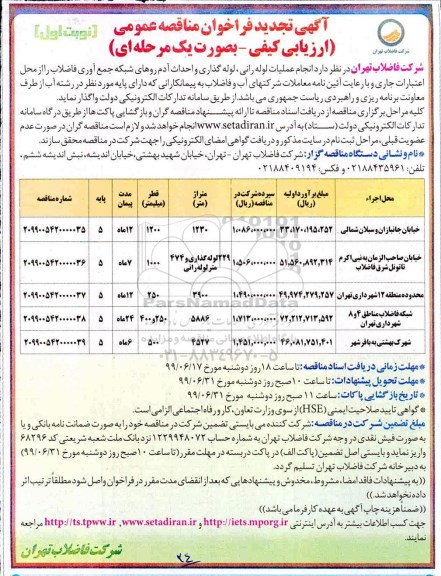 آگهی تجدید فراخوان مناقصه عمومی
(ارزیابی کیفی - بصورت یک مرحله ای)
(نوبت اول)
شرکت فاضلاب تهران
شرکت فاضلاب تهران در نظر دارد انجام عملیات لوله رانی، لوله گذاری و احداث آدم روهای شبکه جمع آوری فاضلاب را از محل
اعتبارات جاری و با رعایت آئین نامه معاملات شرکتهای آب و فاضلاب به پیمانکارانی که دارای پایه مورد نظر در رشته آب از طرف
معاونت برنامه ریزی و راهبردی ریاست جمهوری می باشد، از طریق سامانه تدارکات الکترونیکی دولت واگذار نماید.
کلیه مراحل برگزاری مناقصه از دریافت اسناد مناقصه تا ارائه پیشنهاد مناقصه گران و بازگشایی پاکت ها از طریق درگاه سامانه
تدارکات الکترونیکی دولت (ستاد) به آدرس www.setadiran.ir انجام خواهد شد و لازم است مناقصه گران در صورت عدم
عضویت قبلی، مراحل ثبت نام در سایت مذکور و دریافت گواهی امضای الکترونیکی را جهت شرکت در مناقصه محقق سازند.
*نام و نشانی دستگاه مناقصه گزار: شرکت فاضلاب تهران - تهران، خیابان شهید بهشتی، خیابان اندیشه، نبش اندیشه ششم،
تلفن: ۰۲۱۸۸۴۳۵۹۶۱ و فکس: ۰۲۱۸۸۴۰۹۱۹۴
محل اجراء | مبلغ برآورد اولیه (ریال) | سپرده شرکت در مناقصه (ریال) | متراژ (متر) | قطر (میلیمتر) | مدت پیمان | پایه | شماره مناقصه
خیابان جانبازان و سبلان شمالی | ۳۳،۱۷۰،۱۹۵،۲۵۲ | ۱،۰۸۶،۰۰۰،۰۰۰ | ۱۲۳۰ | ۱۲۰۰ | ۱۲ماه | ۵ | ۲۰۹۹۰۰۵۴۲۰۰۰۰۳۵
خیابان صاحب الزمان به نبی اکرم تا تونل شرق فاضلاب | ۵۱،۵۶۰،۸۹۲،۳۱۴ | ۱،۵۰۶،۰۰۰،۰۰۰ | ۲۲۹ لوله گذاری و ۴۷۴ متر لوله رانی | ۱۰۰۰ | ۷ماه | ۵ | ۲۰۹۹۰۰۵۴۲۰۰۰۰۳۶
محدوده منطقه ۱۲ شهرداری تهران | ۴۹،۹۷۴،۲۷۹،۲۵۷ | ۱،۴۹۰،۰۰۰،۰۰۰ | ۳۹۰۰ | ۲۵۰ | ۱۲ماه | ۵ | ۲۰۹۹۰۰۵۴۲۰۰۰۰۳۷
شبکه فاضلاب مناطق ۴ و ۸ شهرداری تهران | ۷۲،۲۱۲،۷۱۳،۵۹۲ | ۱،۷۱۳،۰۰۰،۰۰۰ | ۵۸۸۶ | ۲۵۰و۴۰۰ | ۲۴ماه | ۵ | ۲۰۹۹۰۰۵۴۲۰۰۰۰۳۸
شهرک بهشتی به باقرشهر | ۴۶،۰۸۱،۷۵۱،۴۰۱ | ۱،۴۵۱،۰۰۰،۰۰۰ | ۴۵۲۷ | ۵۰۰ | ۶ماه | ۵ | ۲۰۹۹۰۰۵۴۲۰۰۰۰۳۹
*مهلت زمانی دریافت اسناد مناقصه: تا ساعت ۱۸ روز دوشنبه مورخ ۹۹/۰۶/۱۷
*مهلت تحویل پیشنهادات: تا ساعت ۱۰ صبح روز دوشنبه مورخ ۹۹/۰۶/۳۱
*تاریخ بازگشایی پاکات: ساعت ۱۱ صبح روز دوشنبه مورخ ۹۹/۰۶/۳۱
* گواهی تایید صلاحیت ایمنی (HSE) از سوی وزارت تعاون، کار و رفاه اجتماعی الزامی است.
مبلغ تضمین شرکت در مناقصه: شرکت کننده می بایستی تضمین شرکت در مناقصه خود را به صورت ضمانت نامه بانکی و یا
به صورت فیش نقدی در وجه شرکت فاضلاب تهران به شماره حساب ۱۲۲۹۹۴۸۰۷۲ نزد بانک ملت شعبه شریعتی کد ۶۸۲۹۶
واریز نماید و بایستی اصل تضمین (پاکت الف) در پاکت دربسته در مهلت مقرر (تا ساعت ۱۰ صبح روز دوشنبه مورخ ۹۹/۰۶/۳۱)
به دبیرخانه شرکت فاضلاب تهران تسلیم گردد.
((به پیشنهادات فاقد امضاء، مشروط، مخدوش و پیشنهادهایی که بعد از انقضای مدت مقرر در فراخوان واصل شود مطلقاً ترتیب اثر
داده نخواهد شد.))
((ضمناً هزینه چاپ آگهی به عهده کارفرما می باشد))
جهت کسب اطلاعات بیشتر به آدرس اینترنتی http://iets.mporg.ir و www.setadiran.ir ,http://ts.tpww.ir مراجعه
نمایند.
شرکت فاضلاب تهران
ParsNamadData
۰۲۱-۸۸۳۴۹۶۷۰-۵